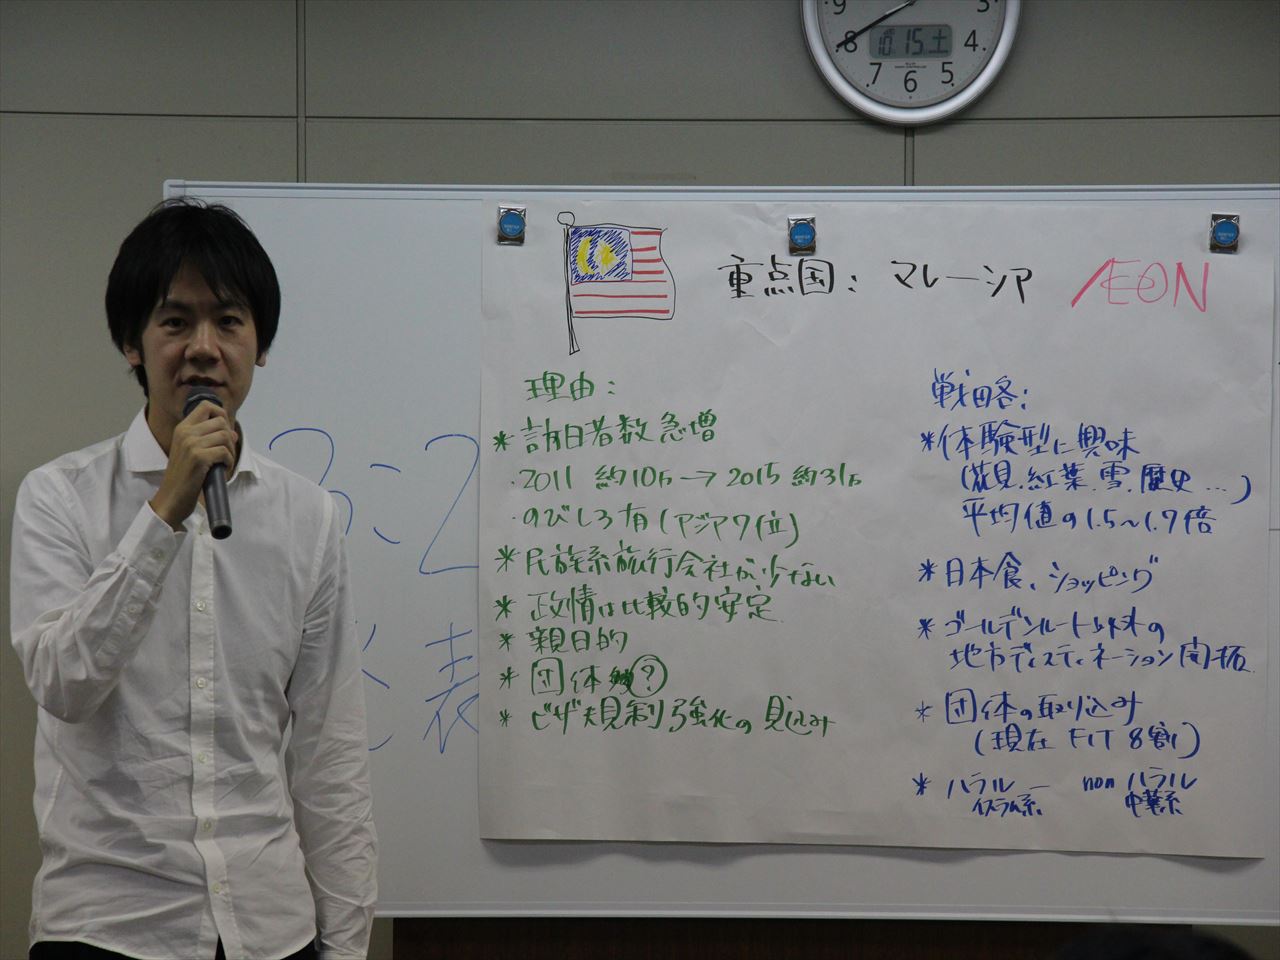 9
3
8
10 15 土
4
7
6
5
重点国: マレーシア
ÆON
3:2
表
理由:
* 訪日者数急増
・2011 約10万→2015 約31万
・のびしろ有(アジア7位)
* 民族系旅行会社が少ない
* 政情は比較的安定
* 親日的
* 団体?
* ビザ規制強化の見込み
戦略:
* 体験型に興味
(花見.紅葉.雪.歴史...)
平均値の1.5〜1.7倍
* 日本食、ショッピング
* ゴールデンルート以外の
地方ディスティネーション開拓
* 団体の取り込み
(現在 FIT 8割)
* ハラル ー non ハラル
イスラム系 中華系